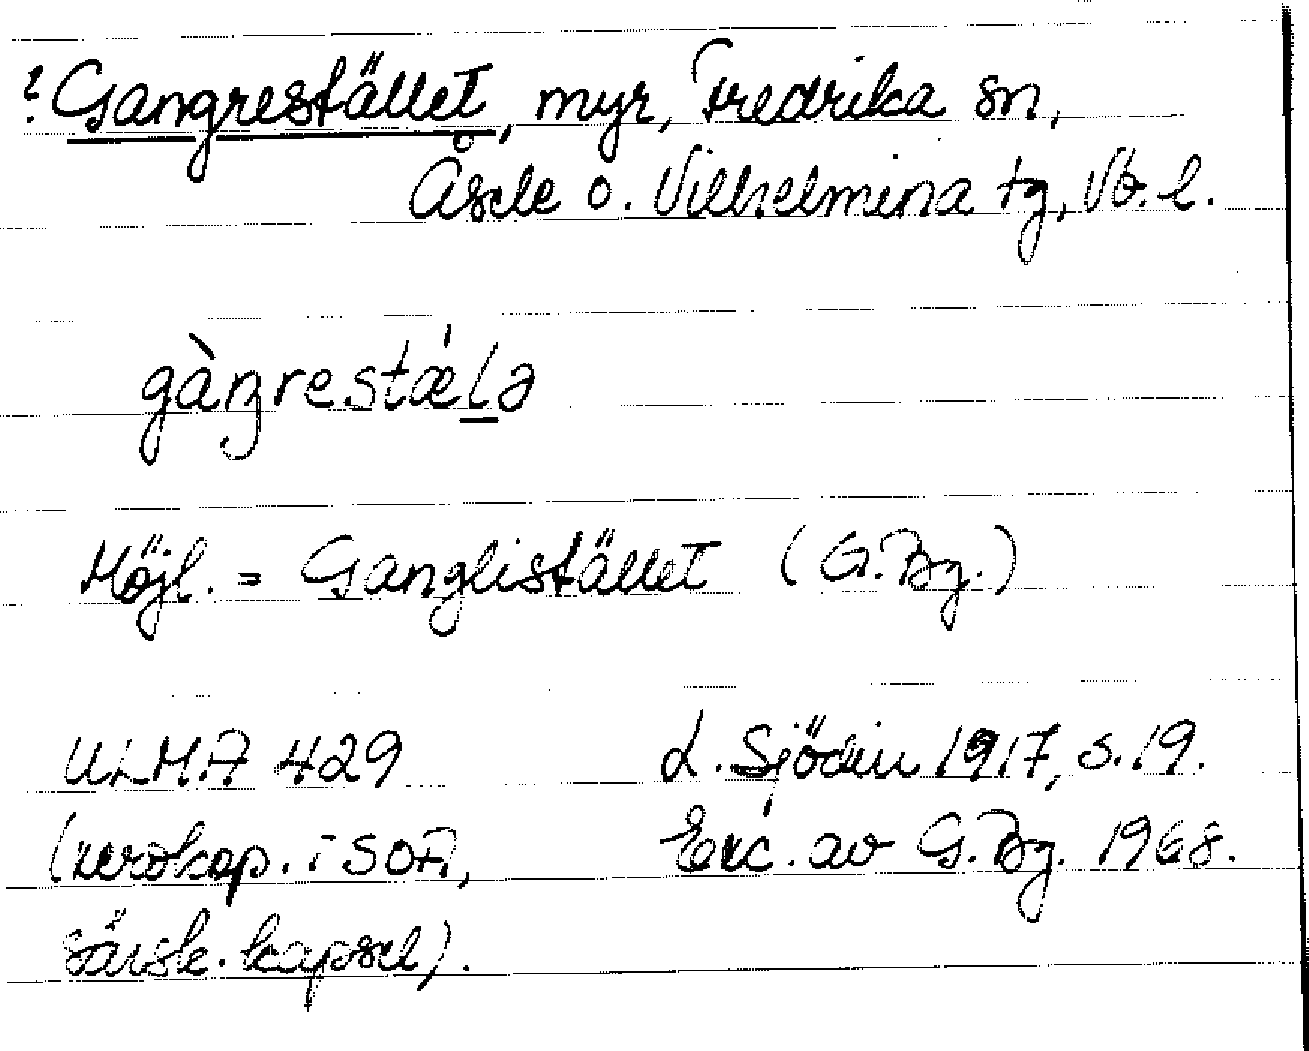 ? Gangrestället, myr, Fredrika sn,
Åsele o. Vilhelmina tg, Vb. l.
gàŋrestǽlə
Möjl. = Ganglistället (G. Bg.)
ULMA 429 L. Sjödin 1917, s. 19.
(xerokop. i SOA, Exc. av G. Bg. 1968.
särsk. kapsel).